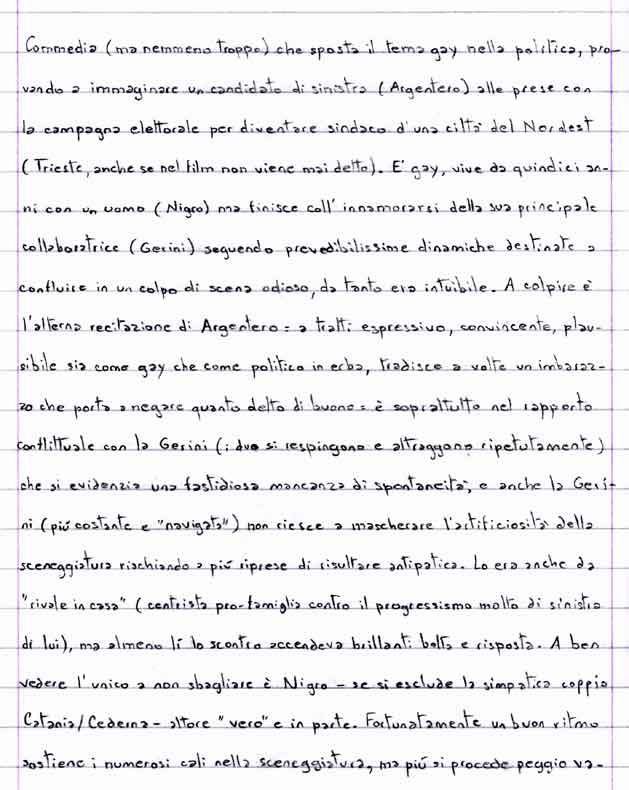 Commedia (ma nemmeno troppo) che sposta il tema gay nella politica, pro-
vando a immaginare un candidato di sinistra (Argentero) alle prese con
la campagna elettorale per diventare sindaco d'una città del Nordest
(Trieste, anche se nel film non viene mai detto). E' gay, vive da quindici an-
ni con un uomo (Nigro) ma finisce coll'innamorarsi della sua principale
collaboratrice (Gerini) seguendo prevedibilissime dinamiche destinate a
confluire in un colpo di scena odioso, da tanto era intuibile. A colpire è
l'alterna recitazione di Argentero: a tratti espressivo, convincente, plau-
sibile sia come gay che come politico in erba, tradisce a volte un imbaraz-
zo che porta a negare quanto detto di buono: è soprattutto nel rapporto
conflittuale con la Gerini (i due si respingono e attraggono ripetutamente)
che si evidenzia una fastidiosa mancanza di spontaneità, e anche la Geri-
ni (più costante e "navigata") non riesce a mascherare l'artificiosità della
sceneggiatura rischiando a più riprese di risultare antipatica. Lo era anche da
"rivale in casa" (centrista pro-famiglia contro il progressismo molto di sinistra
di lui), ma almeno lì lo scontro accendeva brillanti botta e risposta. A ben
vedere l'unico a non sbagliare è Nigro - se si esclude la simpatica coppia
Catania/Cederna - attore "vero" e in parte. Fortunatamente un buon ritmo
sostiene i numerosi cali nella sceneggiatura, ma più si procede peggio va-